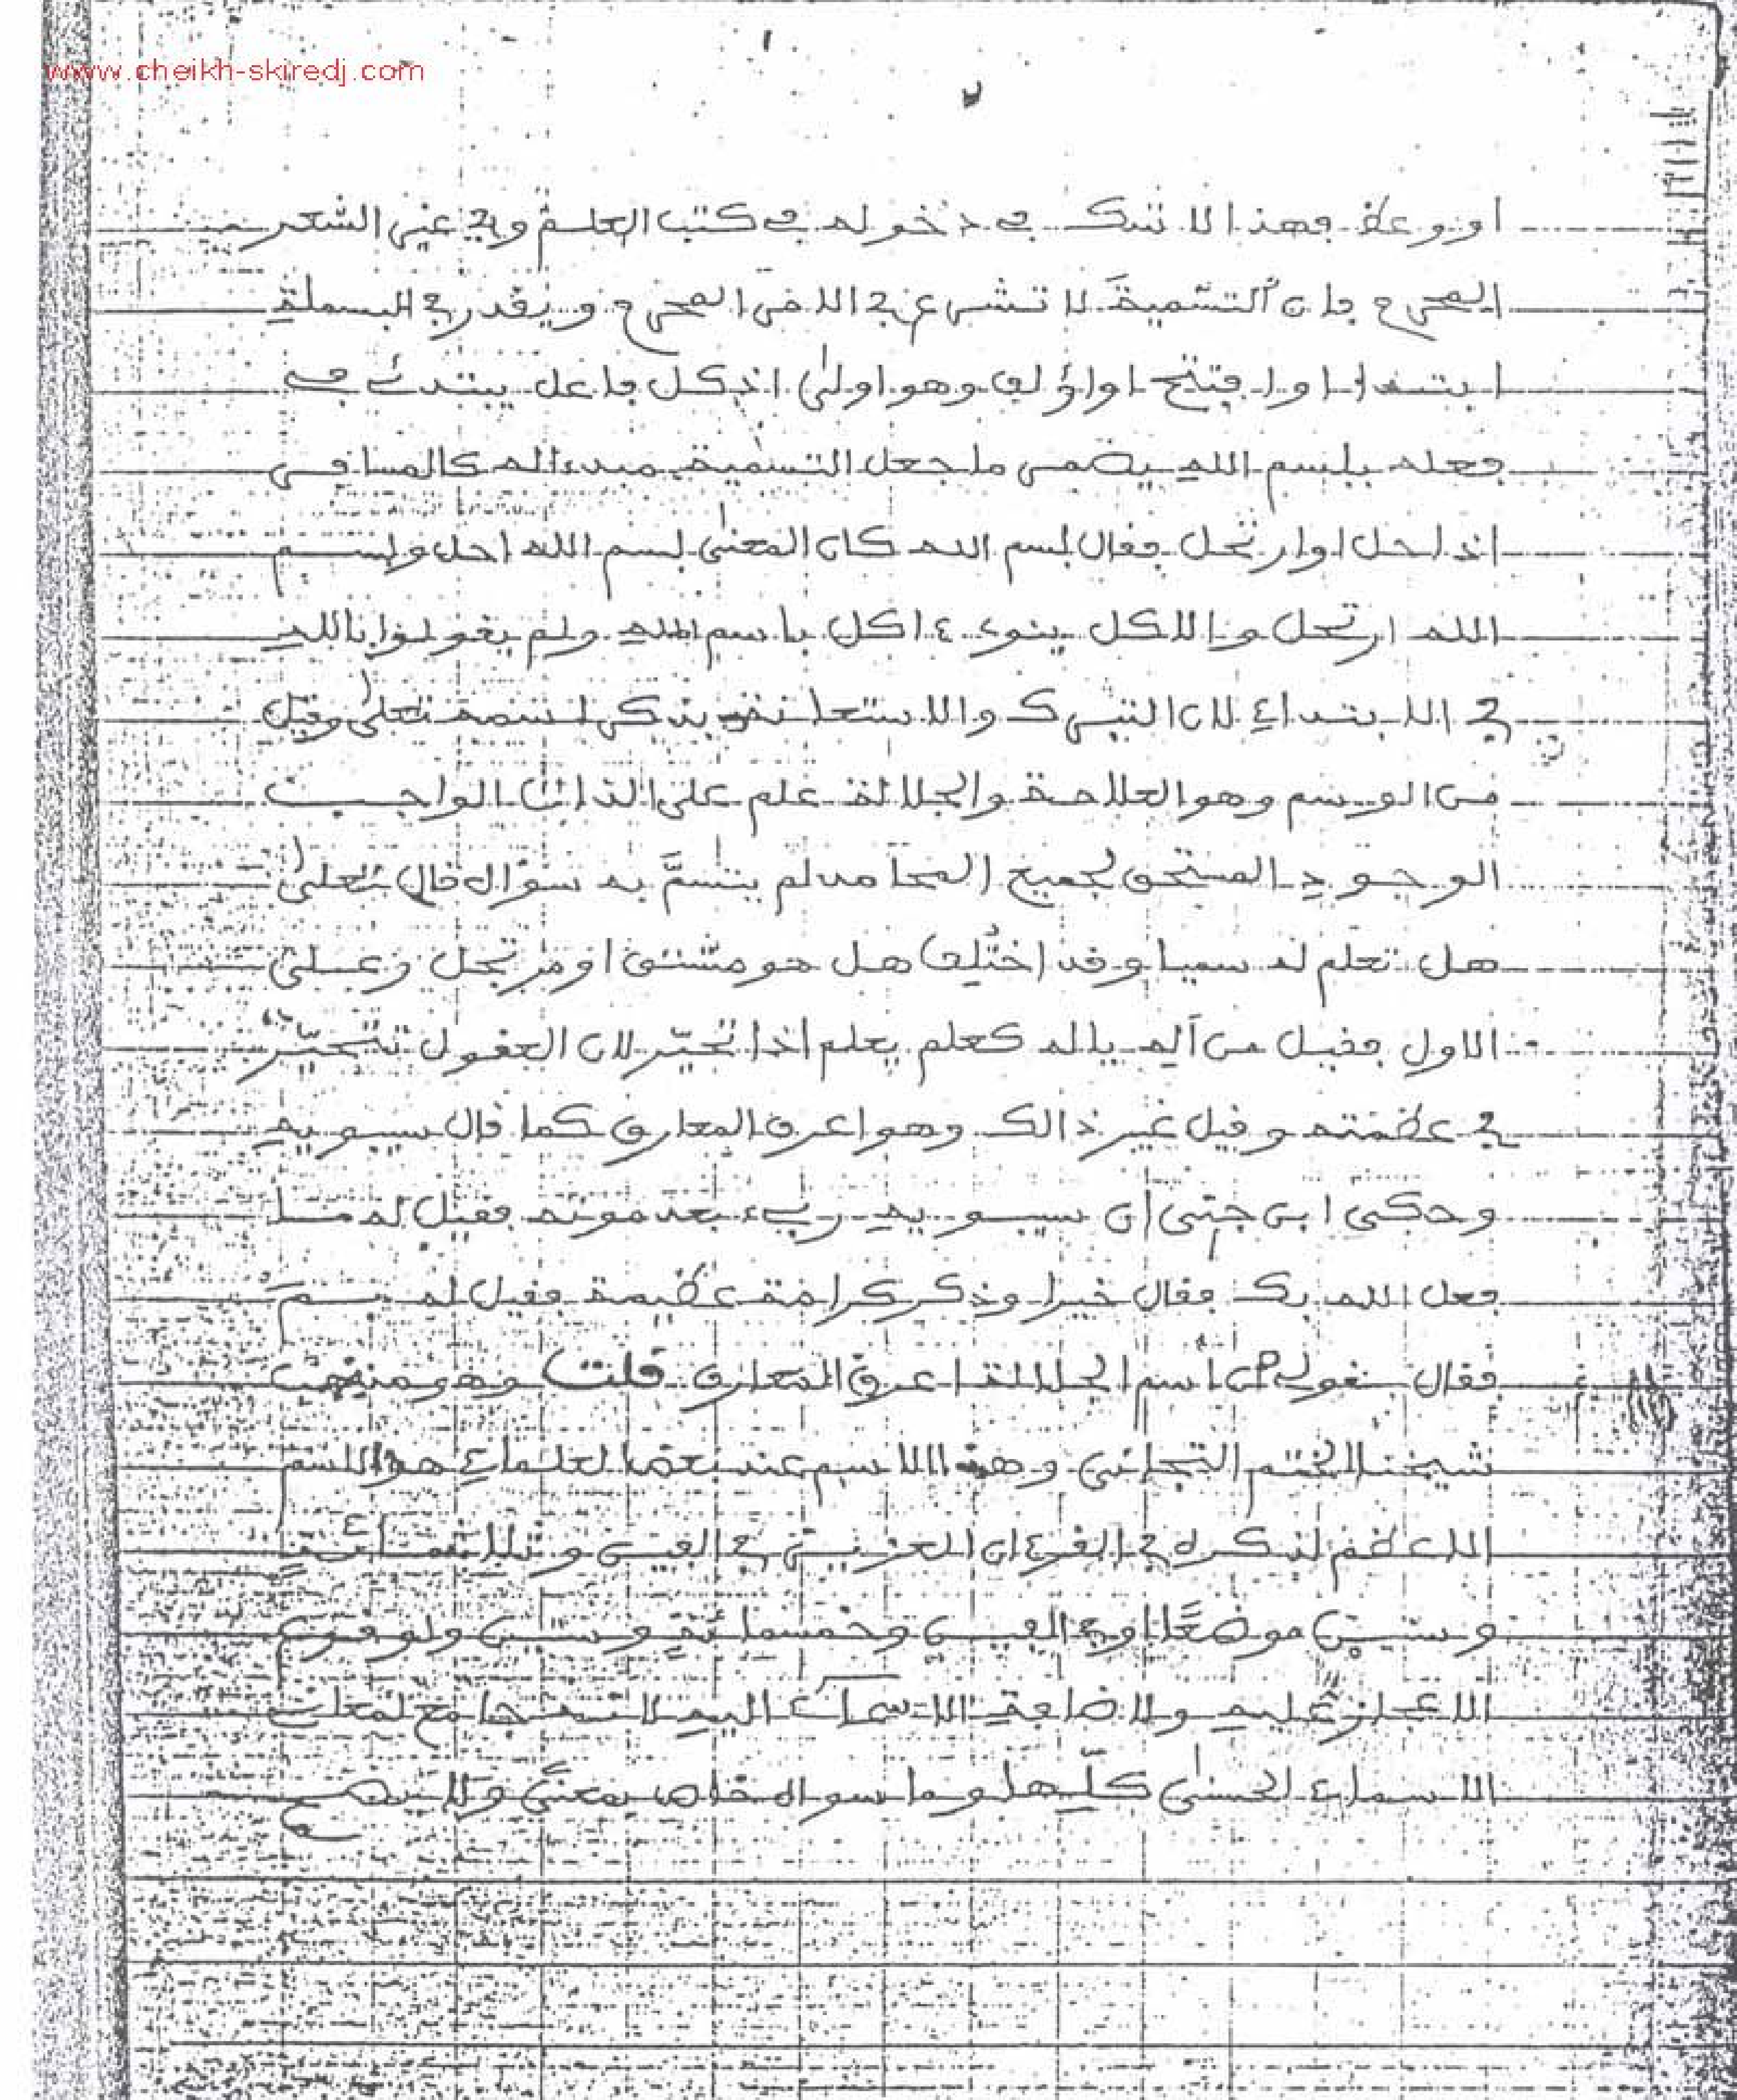 www.cheikh-skiredj.com
او وعظ فهذا لا شك في دخوله في كتب العلم وفي غير الشعر
المحرم فان التسمية لا تشرع في الامر المحرم ويقدر في البسملة
ابتدا او افتتح او اؤلف وهو اولى اذ كل فاعل يبتدئ في
فعله ببسم الله يضمر ما جعل التسمية مبدءا له كالمسافر
اذا حل او ارتحل فقال بسم الله كان المعنى بسم الله احل وبسم
الله ارتحل والاكل ينوي ءاكل باسم الله ولم يقولوا بالله
في الابتداء لان التبرك والاستعانة بذكر اسمه تعلى وقيل
من الوسم وهو العلامة والجلالة علم على الذات الواجب
الوجود المستحق لجميع المحامد لم يتسم به سواه قال تعلى
هل تعلم له سميا وقد اختلف هل هو مشتق او مرتجل وعلى
الاول فقيل من اله ياله كعلم يعلم اذا تحير لان العقول تتحير
في عظمته وقيل غير ذالك وهو اعرف المعارف كما قال سيبويه
وحكى ابن جنى ان سيبويه رىء بعد موته فقيل له ما
فعل الله بك فقال خيرا وذكر كرامة عظيمة فقيل له بم
فقال بقولي ان اسم الجلالة اعرف المعارف قلت وهو مذهب
شيخنا الختم التجاني وهذا الاسم عند بعض العلماء هو الاسم
الاعظم لذكره في القرءان العزيز في الفين وثلاثمائة
وستين موضعا او في الفين وخمسمائة وستين ولوقوع
الاعجاز عليه ولاضافة الاسماء اليه لانه جامع لمعاني
الاسماء الحسنى كلها وما سواه خاص بمعنى ولا يصح